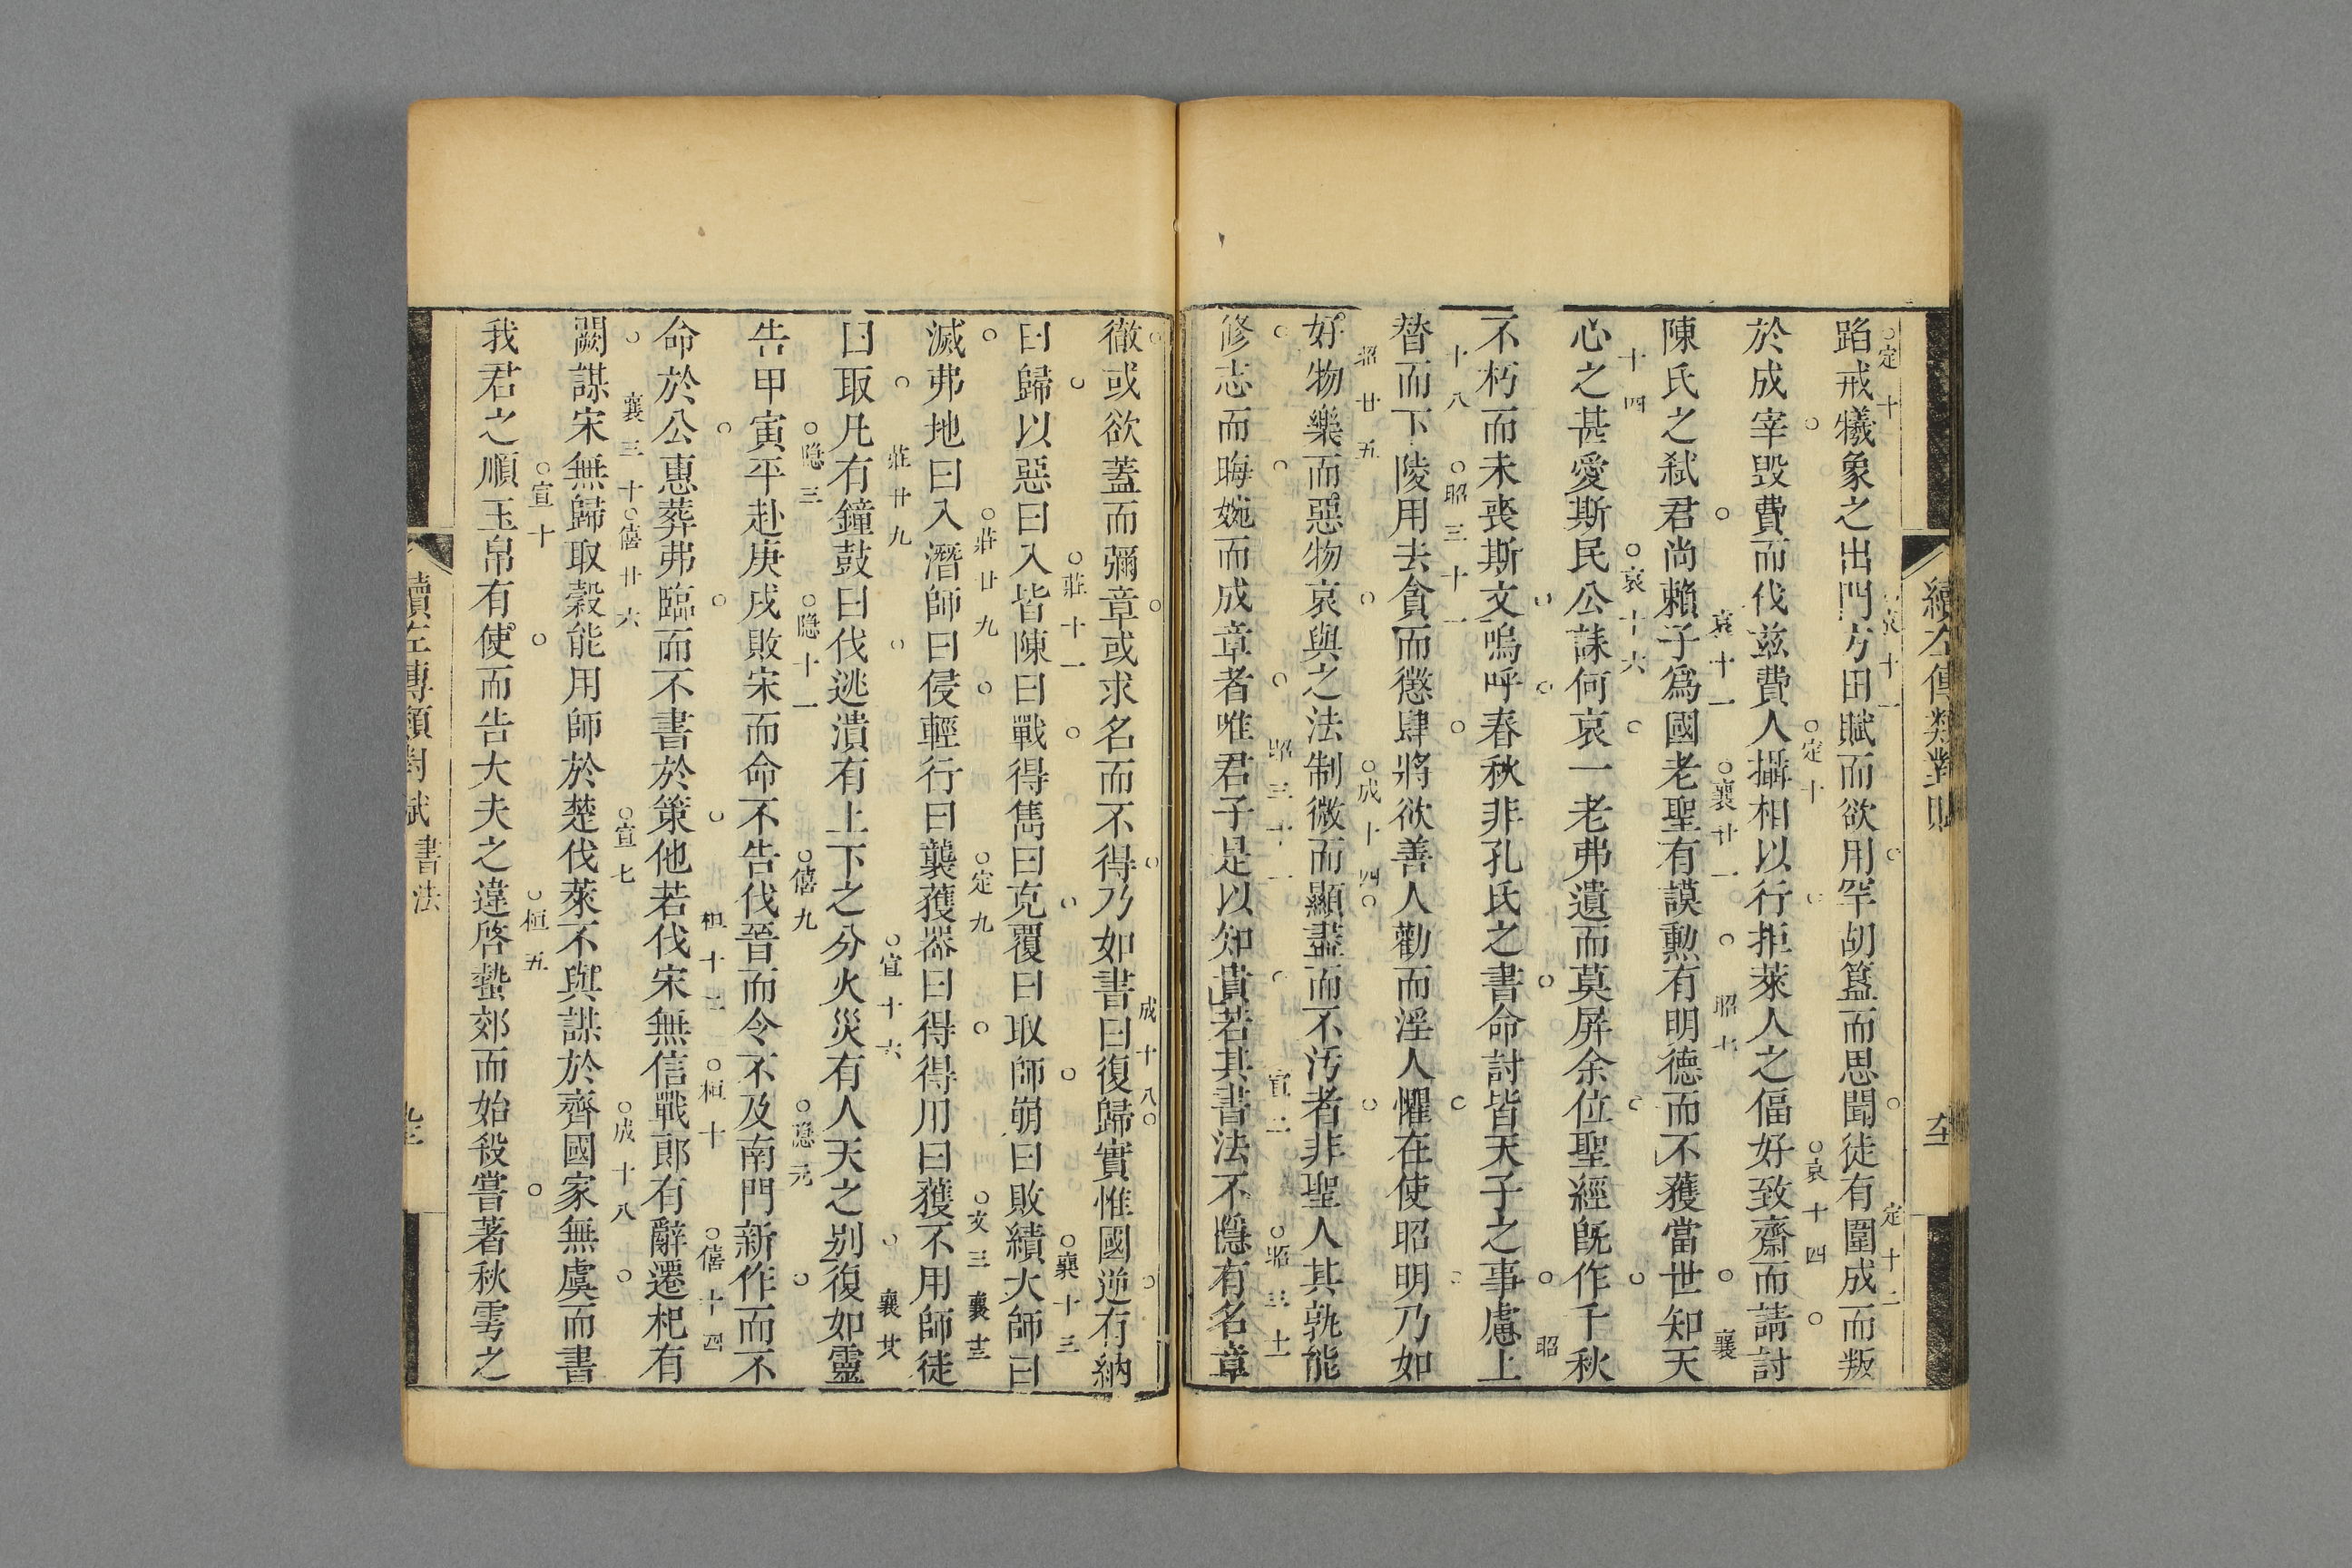 續左傳類對賦
蹈戒犧象之出門方田賦而欲用罕胡簋而思聞徒有圍成而叛
定十
哀十一
定十二
於成宰毀費而伐兹費人攝相以行拒萊人之偪好致齋而請討
定十
哀十四
陳氏之弑君尚賴子爲國老聖有謨勲有明德而不獲當世知天
哀十一
襄廿一
昭七
襄
心之甚愛斯民公誄何哀一老弗遺而莫屏余位聖經旣作千秋
十四
哀十六
不朽而未喪斯文嗚呼春秋非孔氏之書命討皆天子之事慮上
昭
替而下陵用去貪而懲肆將欲善人勸而淫人懼在使昭明乃如
十八
昭三十一
好物樂而惡物哀與之法制微而顯盡而不汚者非聖人其孰能
昭廿五
成十四
修志而晦婉而成章者唯君子是以知貴若其書法不隱有名章
昭三十一
宣二
昭三十
徹或欲蓋而彌章或求名而不得乃如書曰復歸實惟國逆有納
成十八
曰歸以惡曰入皆陳曰戰得雋曰克覆曰取師崩曰敗績大師曰
莊十一
襄十三
滅弗地曰入潛師曰侵輕行曰襲獲器曰得得用曰獲不用師徒
莊廿九
定九
文三
襄十三
曰取凡有鐘鼓曰伐逃潰有上下之分火災有人天之别復如靈
莊廿九
宣十六
襄廿八
告甲寅平赴庚戌敗宋而命不告伐晉而令不及南門新作而不
隱三
隱十一
僖九
隱元
命於公惠葬弗臨而不書於策他若伐宋無信戰郎有辭遷杞有
桓十二
桓十
僖十四
闕謀宋無歸取穀能用師於楚伐萊不與謀於齊國家無虞而書
襄三十
僖廿六
宣七
成十八
我君之順玉帛有使而告大夫之違啓蟄郊而始殺嘗著秋雩之
宣十
桓五
續左傳類對賦 書法